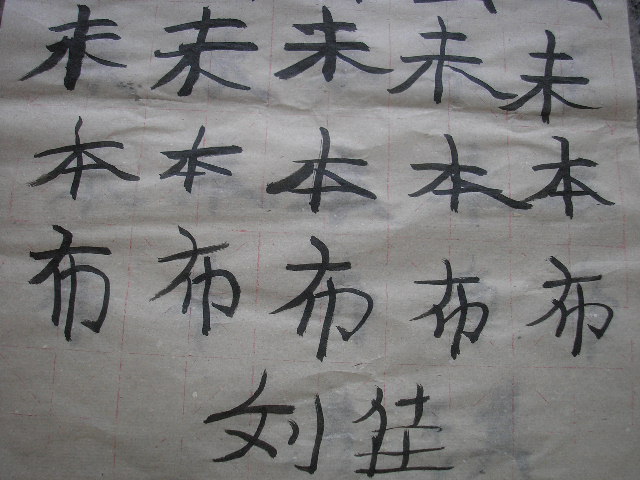 末末未未未
本本本本本
布布布布布
刘佳